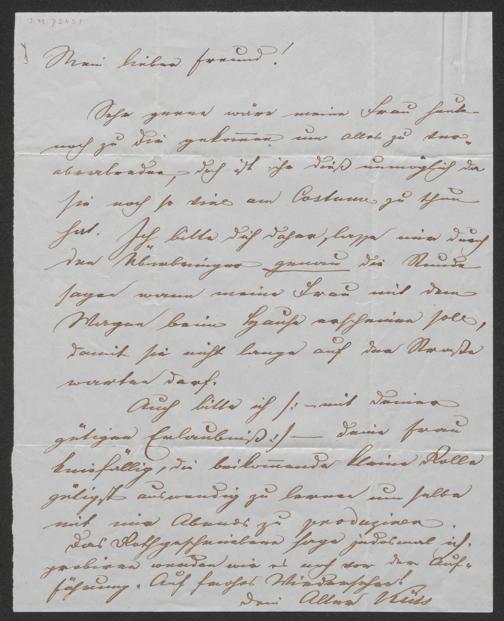 Mein lieber Freund!
Sehr gerne wäre meine Frau heute
noch zu Dir gekommen um alles zu ver-
abreden, doch ist ihr dieß unmöglich da
sie noch so viel am Costume zu thun
hat. Ich bitte dich daher, lasse mir durch
den Überbringer genau die Stunde
sagen wann meine Frau mit dem
Wagen beim Hause erscheinen soll,
damit sie nicht lange auf der Straße
warten darf.
Auch bitte ich /: – mit Deiner
gütigen Erlaubniß :/ – Deine Frau
kniefällig, die beikommende kleine Rolle
gütigst auswendig zu lernen um selbe
mit mir Abends zu produziren.
Das Rothgeschriebene sage jedesmal ich.
probiren werden wir es noch vor der Auf-
führung. Auf frohes Wiedersehen!
Dein Alter